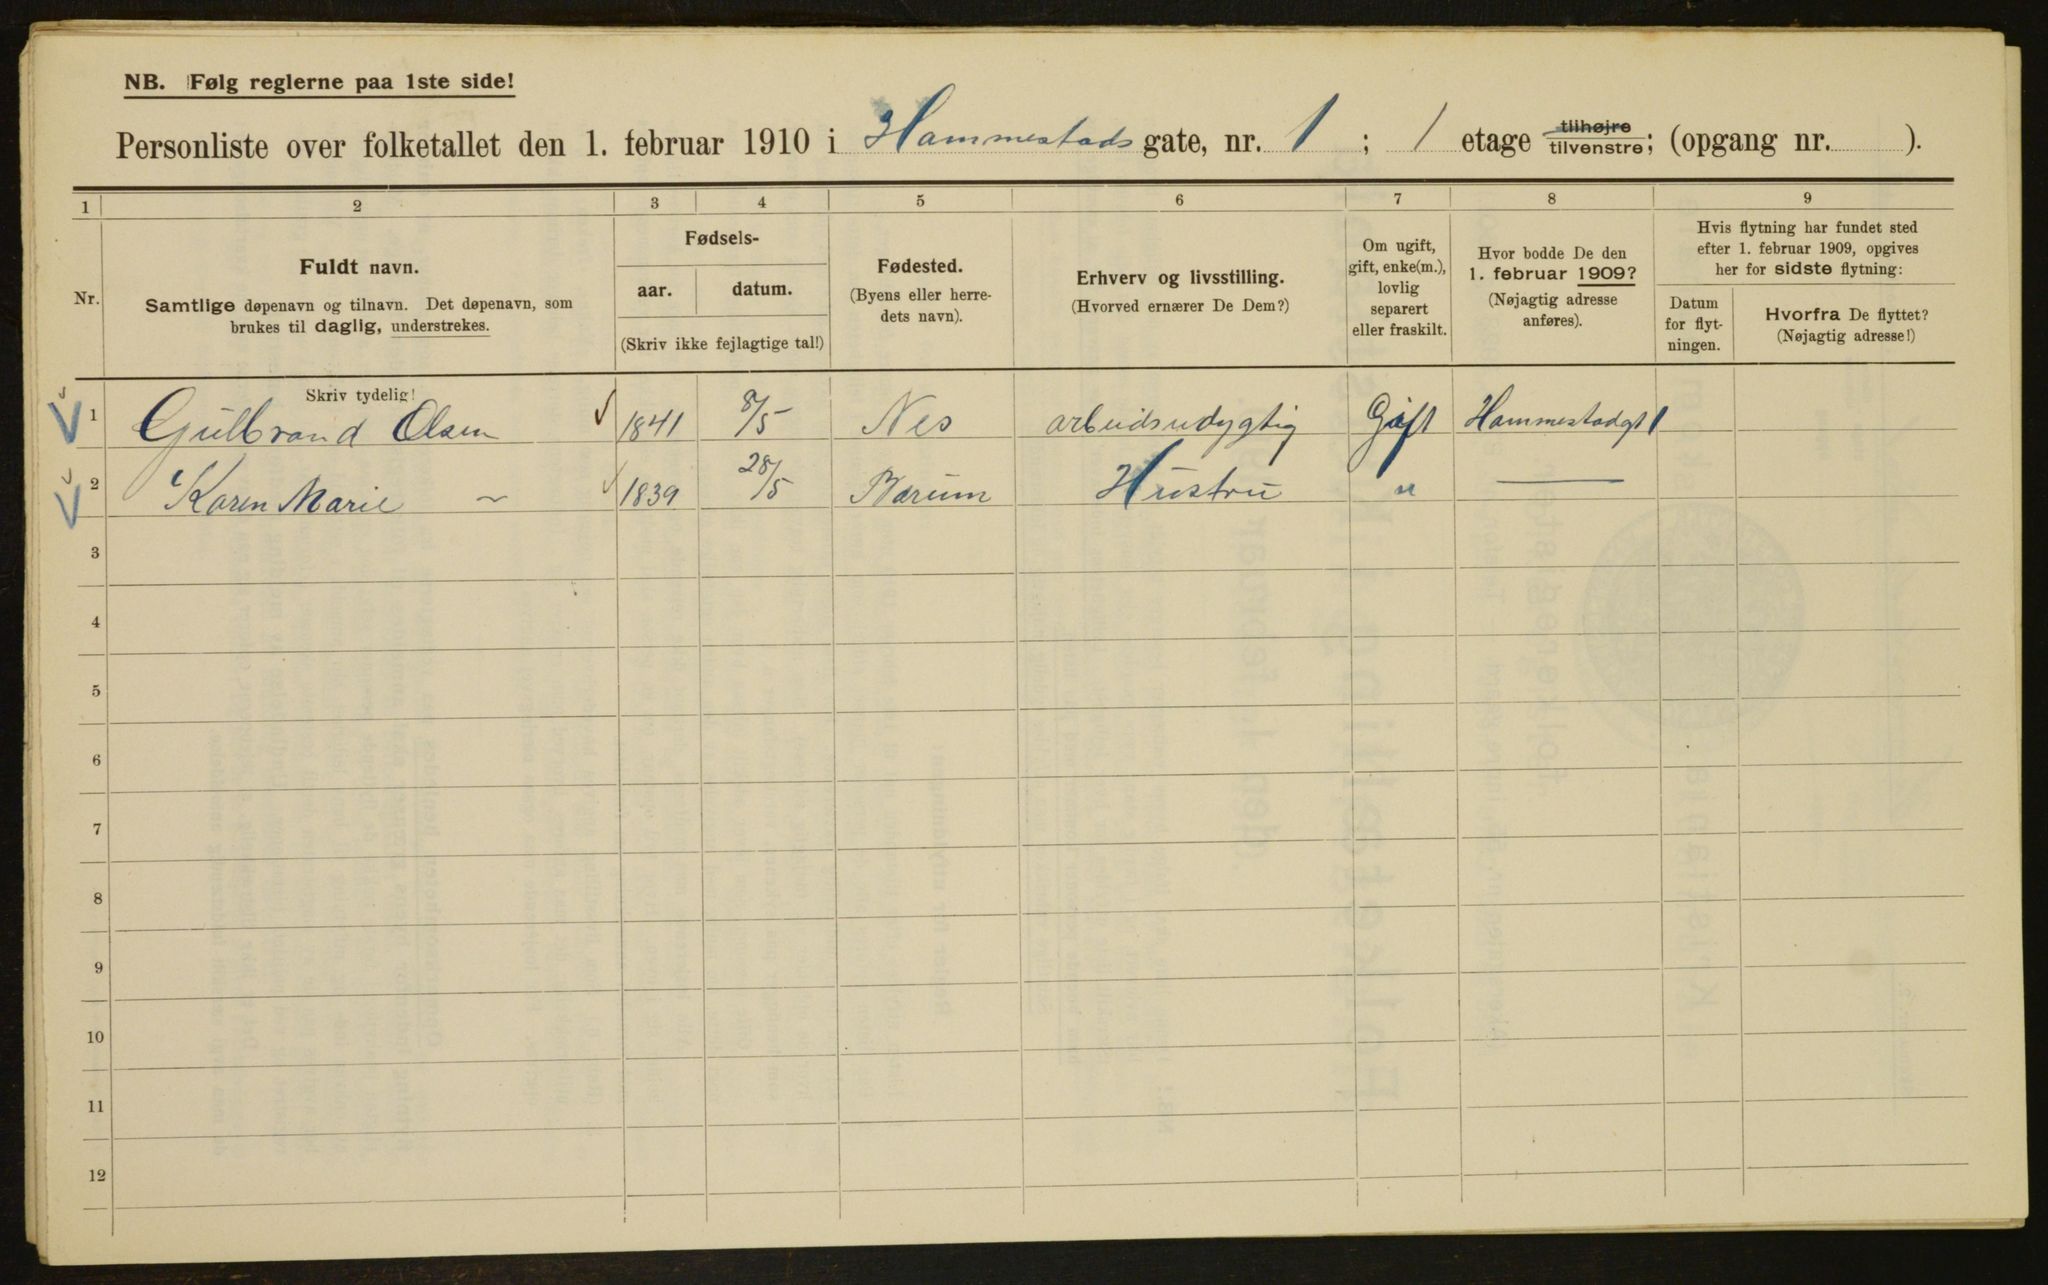 NB. Følg reglerne paa 1ste side!
Personliste over folketallet den 1. februar 1910 i Hammestads gate, nr. 1 ; 1 etage tilhøjre tilvenstre; (opgang nr. ).
1 2 3 4 5 6 7 8 9
Nr.
Fuldt navn.
Samtlige døpenavn og tilnavn. Det døpenavn, som
brukes til daglig, understrekes.
Fødsels-
aar. datum.
(Skriv ikke fejlagtige tal!)
Fødested.
(Byens eller herre-
dets navn).
Erhverv og livsstilling.
(Hvorved ernærer De Dem?)
Om ugift,
gift, enke(m.),
lovlig
separert
eller fraskilt.
Hvor bodde De den
1. februar 1909?
(Nøjagtig adresse
anføres).
Hvis flytning har fundet sted
efter 1. februar 1909, opgives
her for sidste flytning:
Datum
for flyt-
ningen.
Hvorfra De flyttet?
(Nøjagtig adresse!)
Skriv tydelig!
1 Gulbrand Olsen 1841 8/5 Nes arbeidsudygtig Gift Hammestadgt 1
2 Karen Marie ~ 1839 28/5 Bærum Hustru " —
3
4
5
6
7
8
9
10
11
12